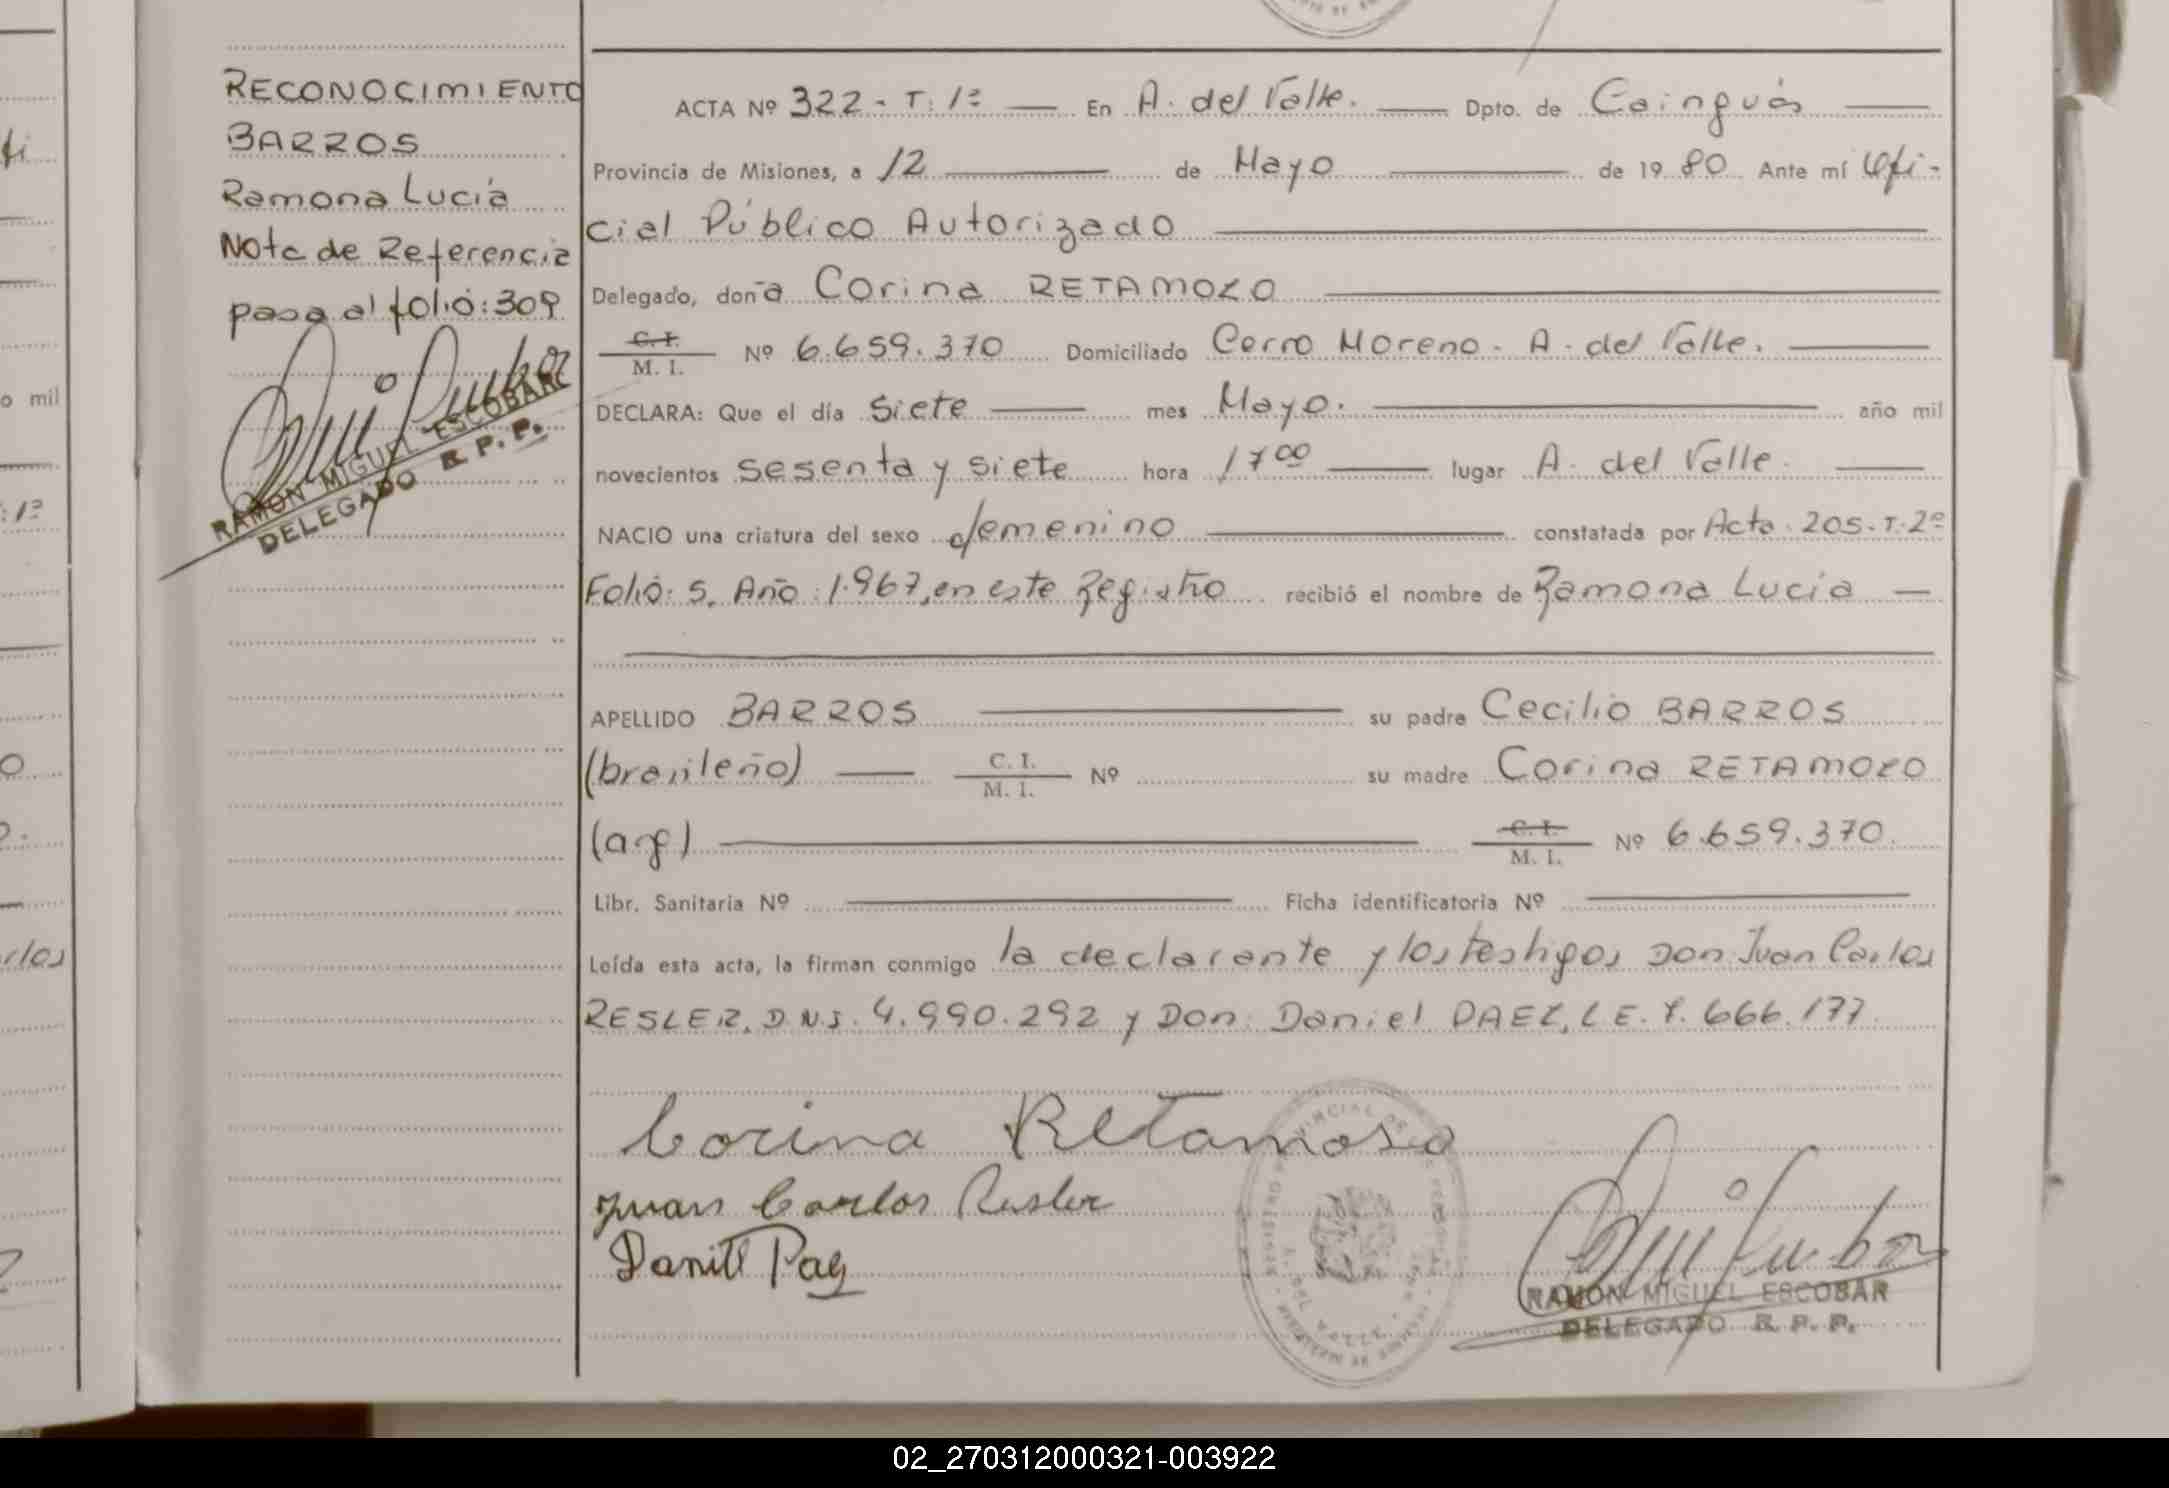 RECONOCIMIENTO
BARROS
Ramona Lucía
Nota de Referencia
pasa al folio: 309
RAMON MIGUEL ESCOBAR
DELEGADO R. P. P.
ACTA Nº 322 - T: 1º — En A. del Valle. — Dpto. de Cainguás —
Provincia de Misiones, a 12 — de Mayo — de 1980 Ante mí Ofi-
cial Público Autorizado —
Delegado, doña Corina RETAMOZO —
C. I. / M. I. Nº 6.659.370 Domiciliado Cerro Moreno - A. del Valle. —
DECLARA: Que el día siete — mes Mayo. — año mil
novecientos sesenta y siete hora 17 00 — lugar A. del Valle. —
NACIO una criatura del sexo femenino — constatada por Acta. 205. T. 2º
Folio: 5. Año: 1.967, en este Registro recibió el nombre de Ramona Lucía —
APELLIDO BARROS — su padre Cecilio BARROS
(brasileño) — C. I. / M. I. Nº su madre Corina RETAMOZO
(arg) — C. I. / M. I. Nº 6.659.370.
Libr. Sanitaria Nº — Ficha identificatoria Nº —
Leída esta acta, la firman conmigo la declarante y los testigos Don Juan Carlos
RESLER, D.N.I. 4.990.292 y Don: Daniel PAEZ, L.E. 7.666.177.
Corina Retamoso
Juan Carlos Resler
Daniel Paez
RAMON MIGUEL ESCOBAR
DELEGADO R. P. P.
o mil
: 1º
rlos
02_270312000321-003922